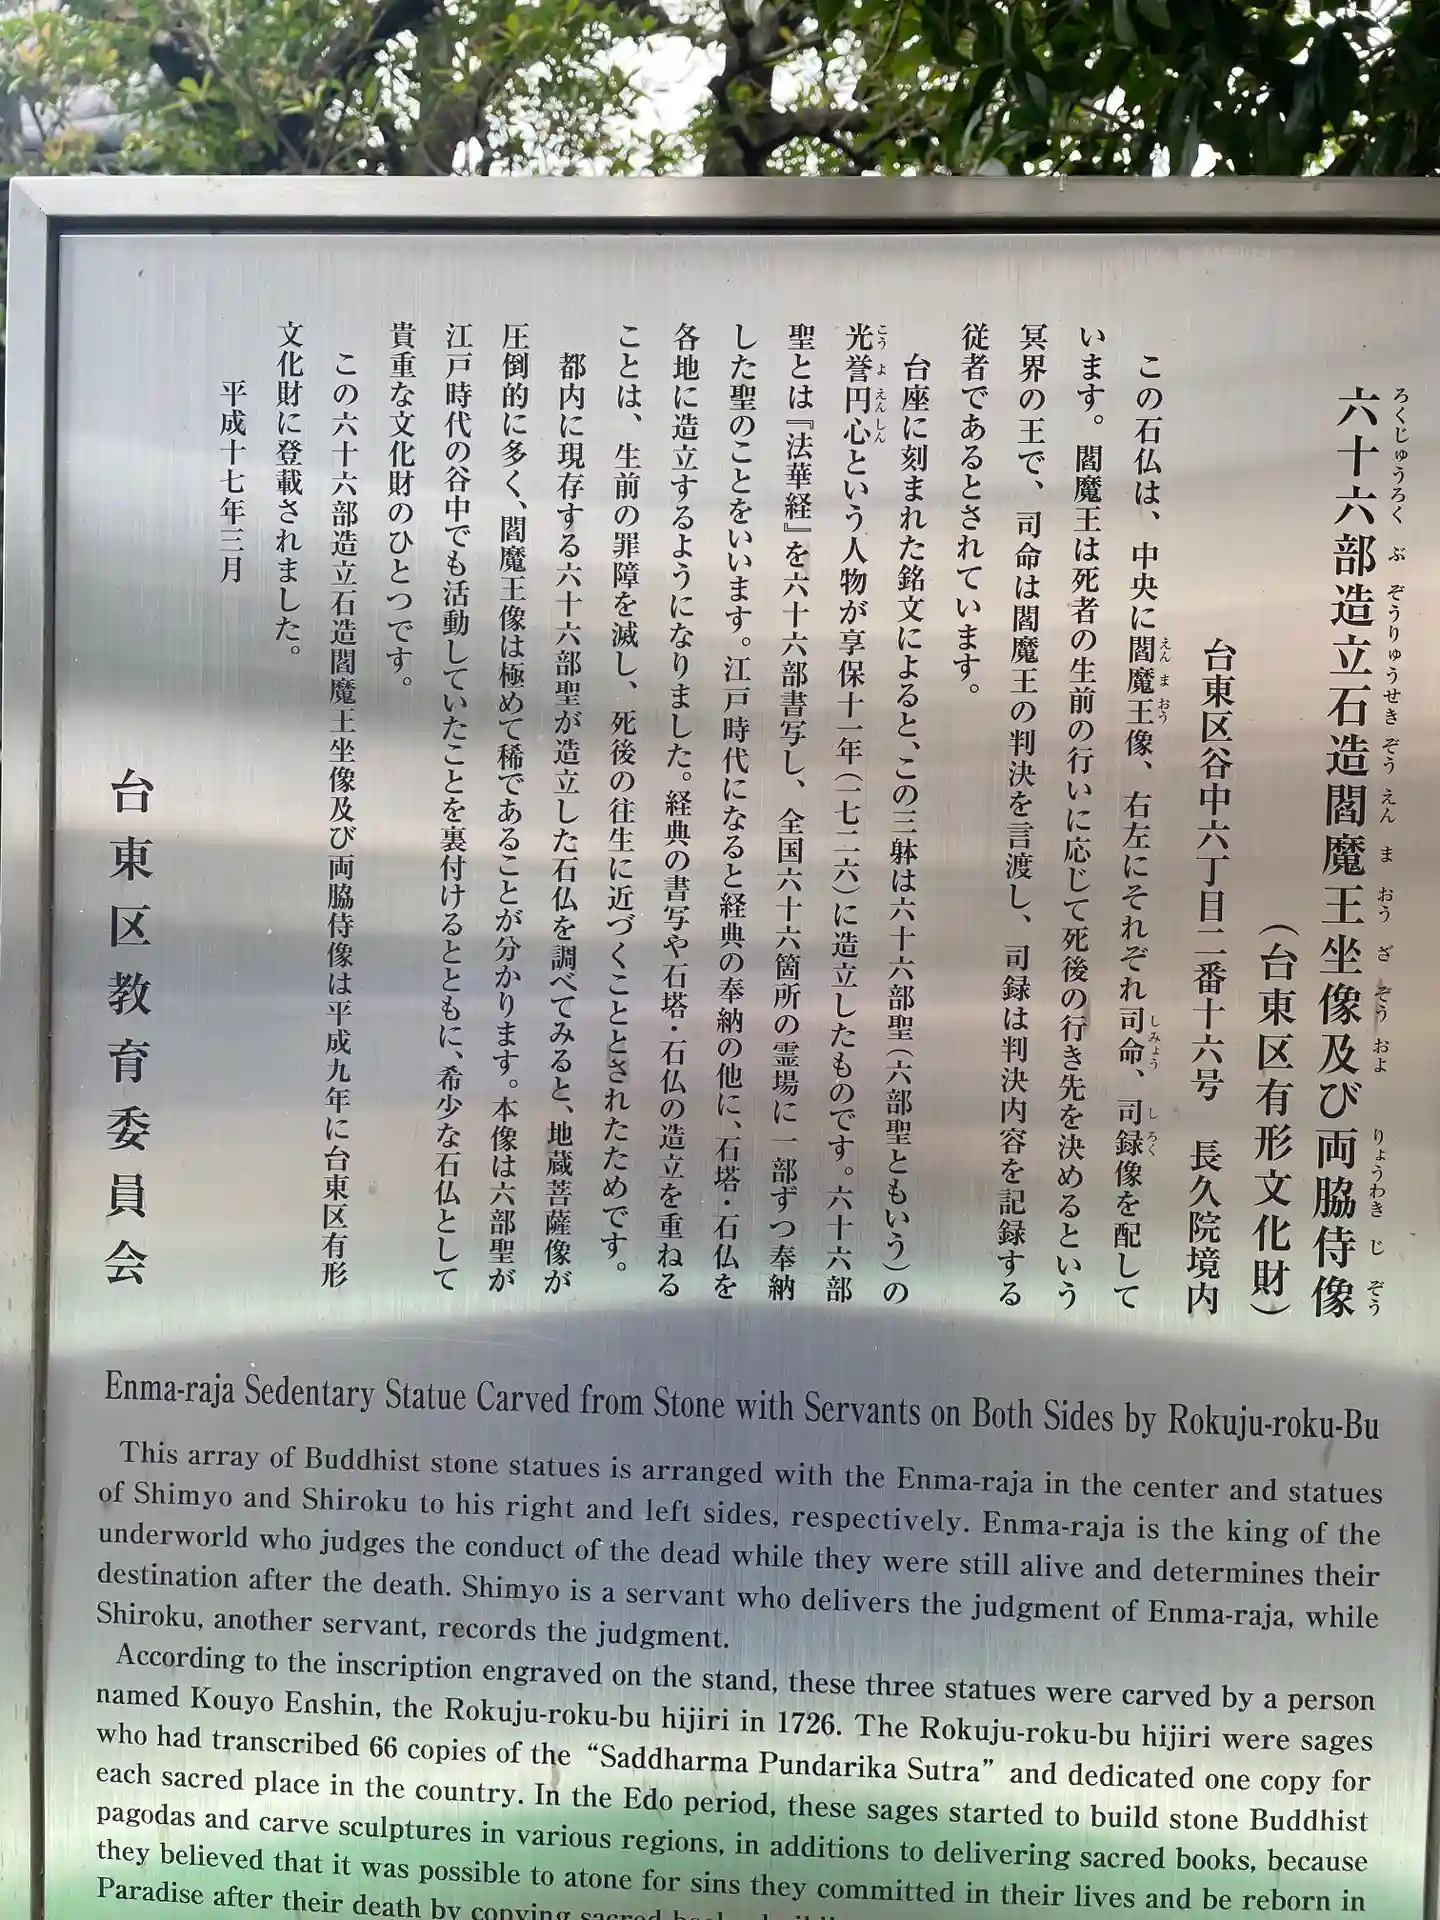 六十六部造立石造閻魔王坐像及び両脇侍像
ろくじゅうろく ぶ ぞうりゅうせきぞう えん ま おう ざ ぞう およ りょうわき じ ぞう
（台東区有形文化財）
台東区谷中六丁目二番十六号 長久院境内
この石仏は、中央に閻魔王像、右左にそれぞれ司命、司録像を配して
えん ま おう しみょう し ろく
います。閻魔王は死者の生前の行いに応じて死後の行き先を決めるという
冥界の王で、司命は閻魔王の判決を言渡し、司録は判決内容を記録する
従者であるとされています。
台座に刻まれた銘文によると、この三躰は六十六部聖（六部聖ともいう）の
光誉円心という人物が享保十一年（一七二六）に造立したものです。六十六部
こう よ えんしん
聖とは『法華経』を六十六部書写し、全国六十六箇所の霊場に一部ずつ奉納
した聖のことをいいます。江戸時代になると経典の奉納の他に、石塔・石仏を
各地に造立するようになりました。経典の書写や石塔・石仏の造立を重ねる
ことは、生前の罪障を滅し、死後の往生に近づくこととされたためです。
都内に現存する六十六部聖が造立した石仏を調べてみると、地蔵菩薩像が
圧倒的に多く、閻魔王像は極めて稀であることが分かります。本像は六部聖が
江戸時代の谷中でも活動していたことを裏付けるとともに、希少な石仏として
貴重な文化財のひとつです。
この六十六部造立石造閻魔王坐像及び両脇侍像は平成九年に台東区有形
文化財に登載されました。
平成十七年三月
台東区教育委員会
Enma-raja Sedentary Statue Carved from Stone with Servants on Both Sides by Rokuju-roku-Bu
This array of Buddhist stone statues is arranged with the Enma-raja in the center and statues
of Shimyo and Shiroku to his right and left sides, respectively. Enma-raja is the king of the
underworld who judges the conduct of the dead while they were still alive and determines their
destination after the death. Shimyo is a servant who delivers the judgment of Enma-raja, while
Shiroku, another servant, records the judgment.
According to the inscription engraved on the stand, these three statues were carved by a person
named Kouyo Enshin, the Rokuju-roku-bu hijiri in 1726. The Rokuju-roku-bu hijiri were sages
who had transcribed 66 copies of the “Saddharma Pundarika Sutra” and dedicated one copy for
each sacred place in the country. In the Edo period, these sages started to build stone Buddhist
pagodas and carve sculptures in various regions, in additions to delivering sacred books, because
they believed that it was possible to atone for sins they committed in their lives and be reborn in
Paradise after their death by copying sacred